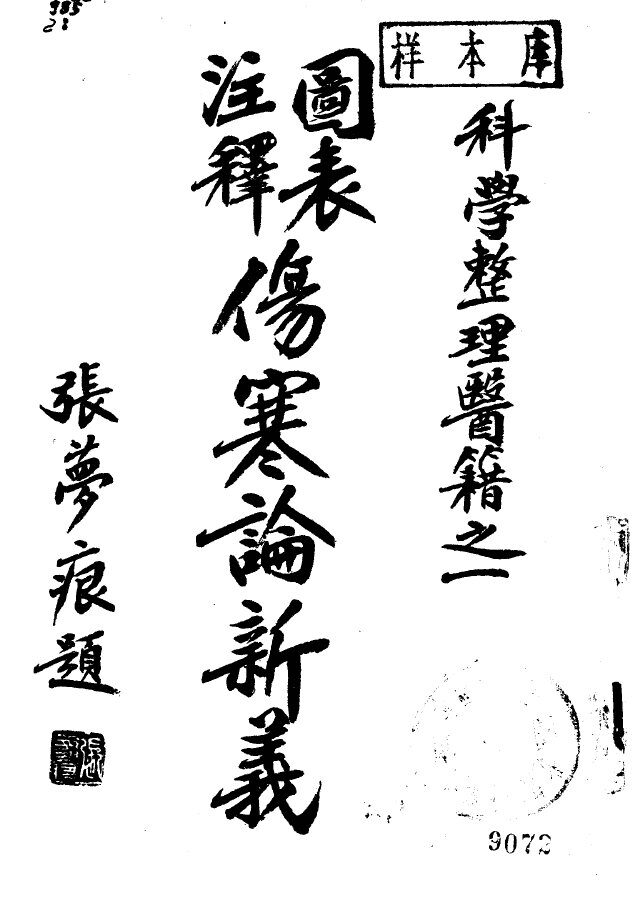 985
样本库
科學整理醫籍之一
圖表
注釋
傷寒論新義
張夢痕題
9072